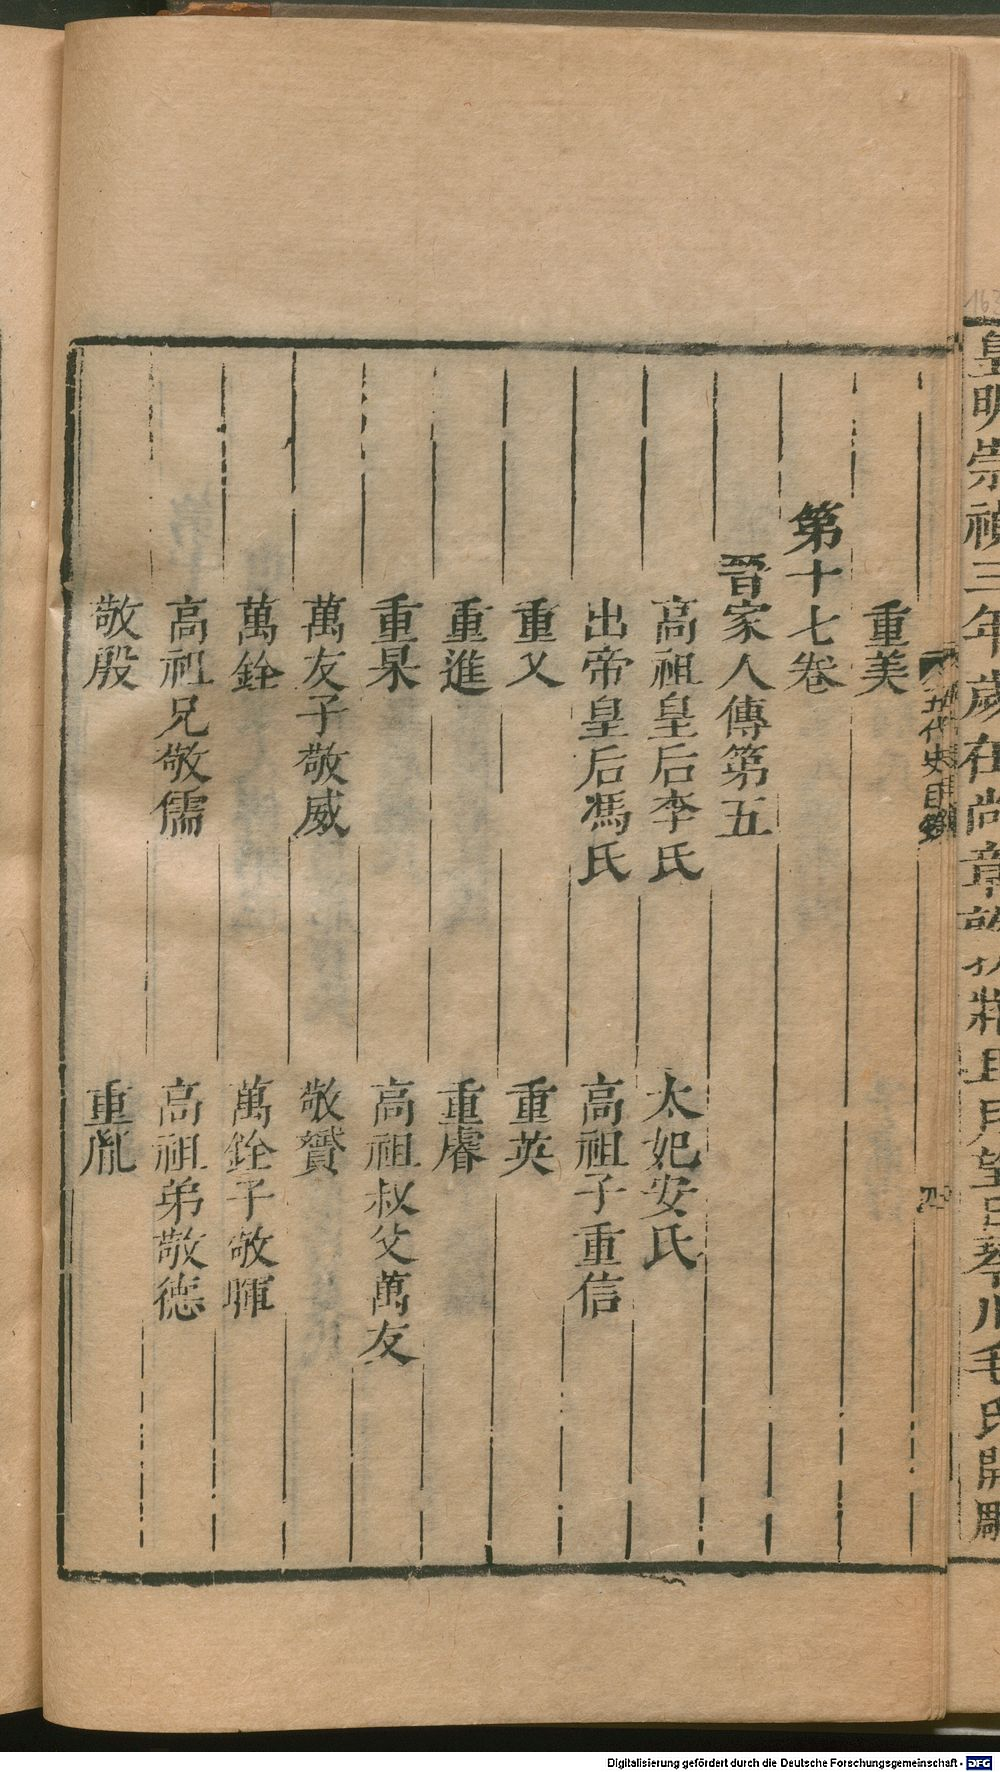 皇明崇禎三年歲在尚章
毛氏開雕
五代史目錄
四
重美
第十七卷
晉家人傳第五
高祖皇后李氏 太妃安氏
出帝皇后馮氏 高祖子重信
重乂 重英
重進 重睿
重杲 高祖叔父萬友
萬友子敬威 敬贇
萬銓 萬銓子敬暉
高祖兄敬儒 高祖弟敬德
敬殷 重胤
Digitalisierung gefördert durch die Deutsche Forschungsgemeinschaft - DFG